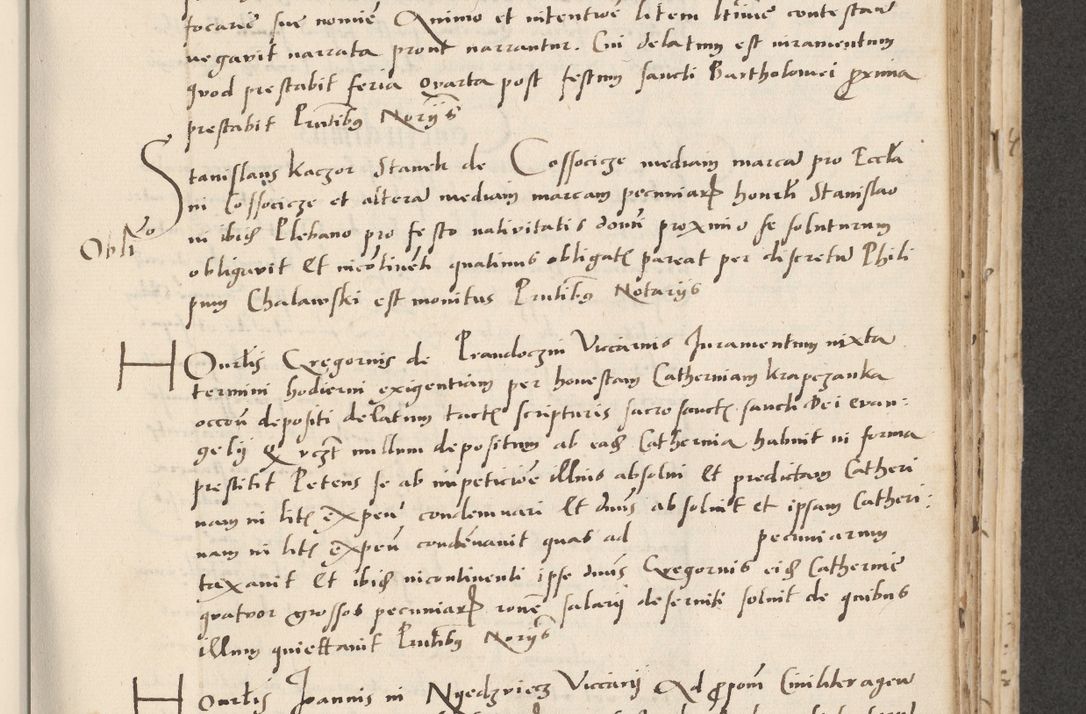 focarie sue nomie Animo et intentioe litem ltime contestan
negavit narrata prout narrantur. Cui delatum est iuramentum
quod prestabit feria quarta post festum sancti Bartholomei proxima
prestabit Pntibus Norijs
Stanislaus Kaczor Stanek de Cossocicze mediam marcam pro Eccla
in Cossocicze et alteram mediam marcam pecuniar honorli Stanislao
Oblio
in ibid Plebano pro festo nativitatis domi proximo se soluturum
obligavit Et incotinenti quatinus obligat pareat per discretum Phili
pum Chalawski est monitus Pntibus Notarijs
Honorlis Gregorius de Prandoczin Viccarius Juramentum iuxta
termini hodierni exigentiam per honestam Catherinam Krapczanka
occoe depositi delatum tactis scripturis sacrosanctis sancti Dei evan:
gelij Q vczt nullum depositum ab ead Catherina habuit in forma
prestitit Petens se ab impeticioe illius absolvi Et predictam Catheri
nam in lit expen condemnari Et dnus absolvit et ipsam Catheri:
nam in lit expen condenavit quas ad pecuniarum
taxavit Et ibid incontinenti ipse dnus Gregorius eid Catherine
quatuor grossos pecuniar rone salarij deserviti solvit de quibus
illum quiettavit Pntibus Norijs
Honorlis Joannis in Nyedzviecz Viccarij Ad propom Civiliter agen